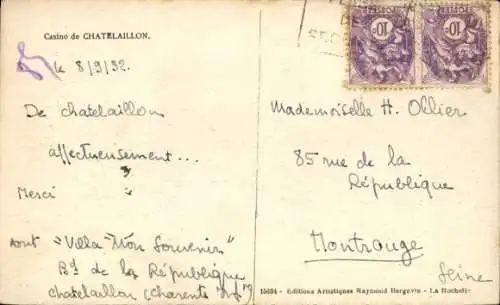 Casino de CHATELAILLON.
le 8/9/32.
De chatelaillon
affectueusement...
Merci
sont "Villa "Mon Souvenir"
Bd de la République
chatelaillon (Charente Infre)
10c 10c
Mademoiselle H. Ollier
85 rue de la
République
Montrouge
Seine
15684 - Editions Artistiques Raymond Bergevin - La Rochelle